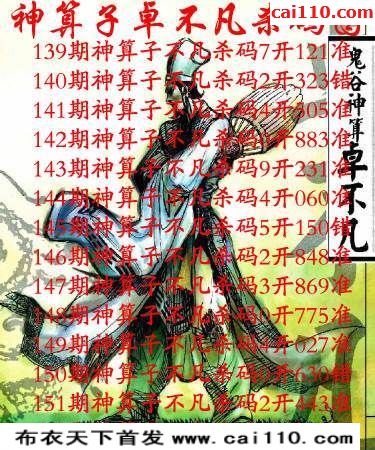 cai110.com
神算子卓不凡杀码图
鬼谷神算
卓不凡
139期神算子不凡杀码7开121准
140期神算子不凡杀码2开323错
141期神算子不凡杀码4开505准
142期神算子不凡杀码0开883准
143期神算子不凡杀码9开231准
144期神算子不凡杀码4开060准
145期神算子不凡杀码5开150错
146期神算子不凡杀码2开848准
147期神算子不凡杀码3开869准
148期神算子不凡杀码0开775准
149期神算子不凡杀码4开027准
150期神算子不凡杀码0开630错
151期神算子不凡杀码2开443准
布衣天下首发 www.cai110.com